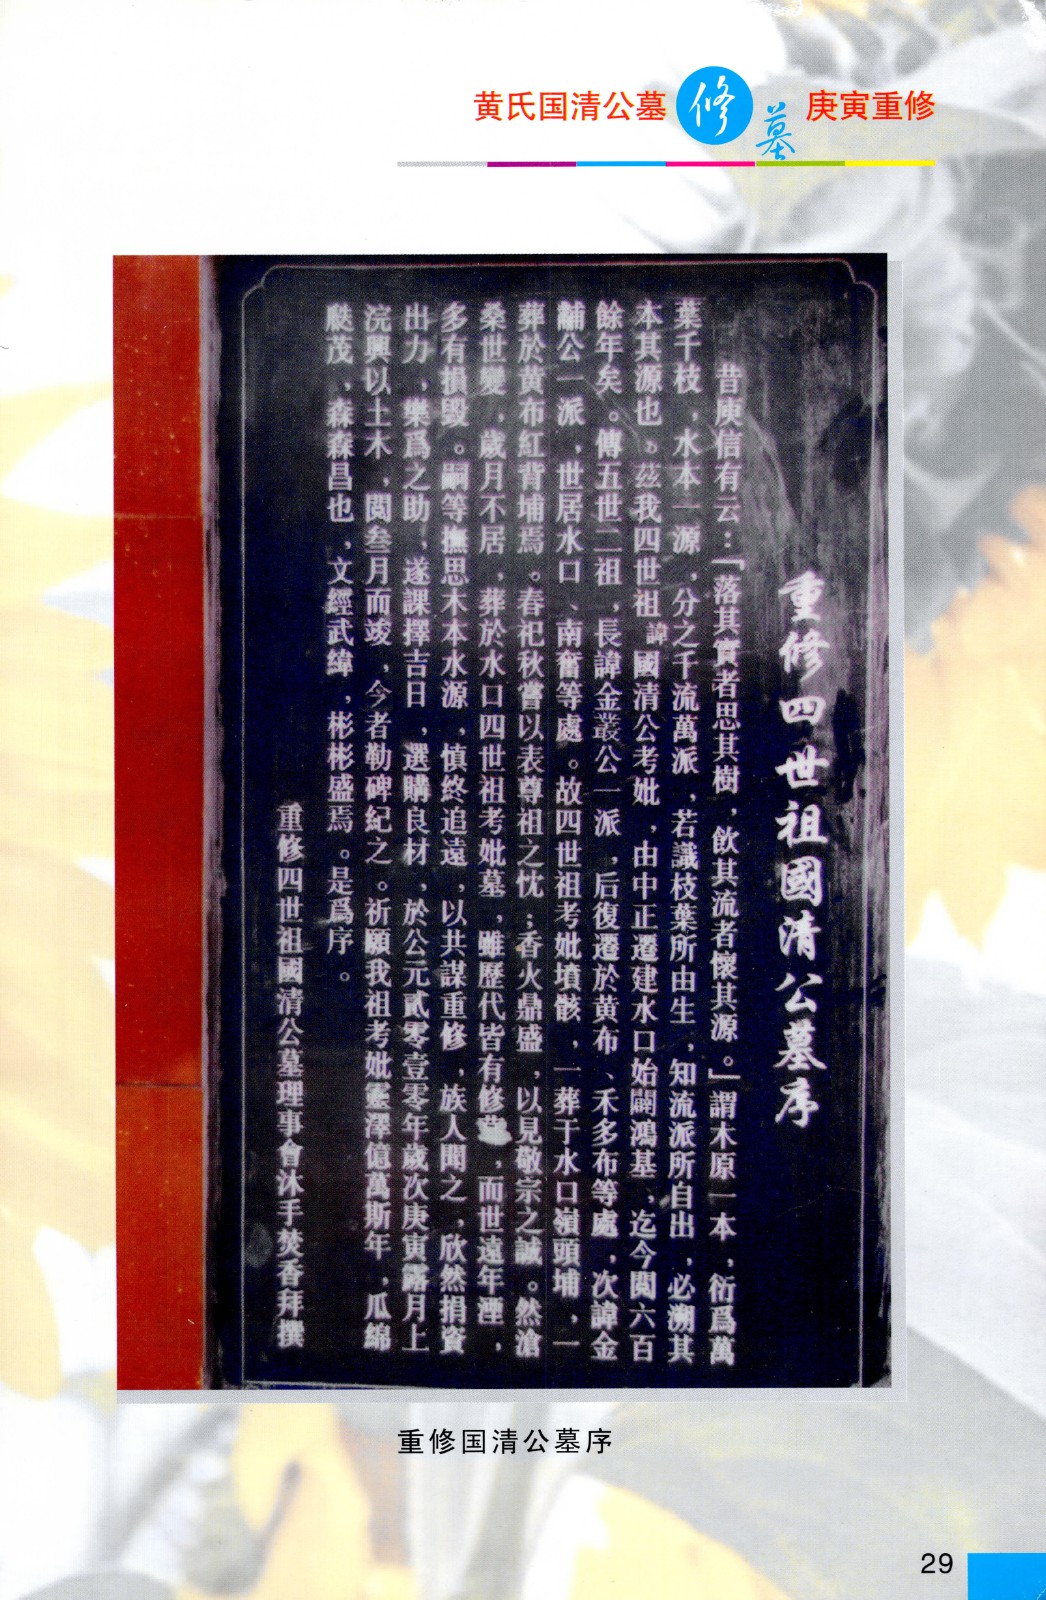 黄氏国清公墓 修墓 庚寅重修
重修四世祖國清公墓序
昔庾信有云：「落其實者思其樹，飲其流者懷其源。」謂木原一本，衍爲萬
葉千枝，水本一源，分之千流萬派，若識枝葉所由生，知流派所自出，必溯其
本其源也。茲我四世祖諱國清公考妣，由中正遷建水口始闢鴻基，迄今閱六百
餘年矣。傳五世二祖，長諱金叢公一派，后復遷於黄布、禾多布等處，次諱金
黼公一派，世居水口、南奮等處。故四世祖考妣墳骸，一葬于水口嶺頭埔，一
葬於黄布紅背埔焉。春祀秋嘗以表尊祖之忱；香火鼎盛，以見敬宗之誠。然滄
桑世變，歲月不居，葬於水口四世祖考妣墓，雖歷代皆有修葺，而世遠年湮，
多有損毀。嗣等撫思木本水源，慎終追遠，以共謀重修，族人聞之，欣然捐資
出力，樂爲之助，遂課擇吉日，選購良材，於公元貳零壹零年歲次庚寅露月上
浣興以土木，閱叁月而竣，今者勒碑紀之。祈願我祖考妣靈澤億萬斯年，瓜綿
瓞茂，森森昌也，文經武緯，彬彬盛焉。是爲序。
重修四世祖國清公墓理事會沐手焚香拜撰
重修国清公墓序
29